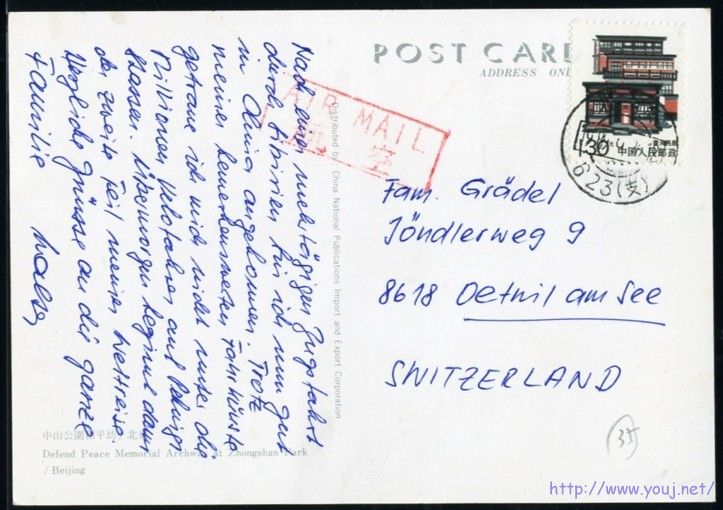 POST CARD
ADDRESS ONL
30 中国人民邮政
6.23(支)
AIR MAIL
航空
Fam. Grädel
Jöndlerweg 9
8618 Oetwil am See
SWITZERLAND
35
Nach einer mehrtägigen Zugsfahrt
durch Sibirien bin ich nun gut
in China angekommen. Trotz
meiner bemerkenswerten Fahrkünste
getraue ich mich nicht unter die
Millionen Velofahrer auf Pekings
Strassen. Übermorgen beginnt dann
der zweite Teil meiner Weltreise.
Herzliche Grüsse an die ganze
Familie Walter
Distributed by China National Publications Import and Export Corporation
中山公園和平坊 北京
Defend Peace Memorial Archway at Zhongshan Park
/ Beijing
http://www.youj.net/